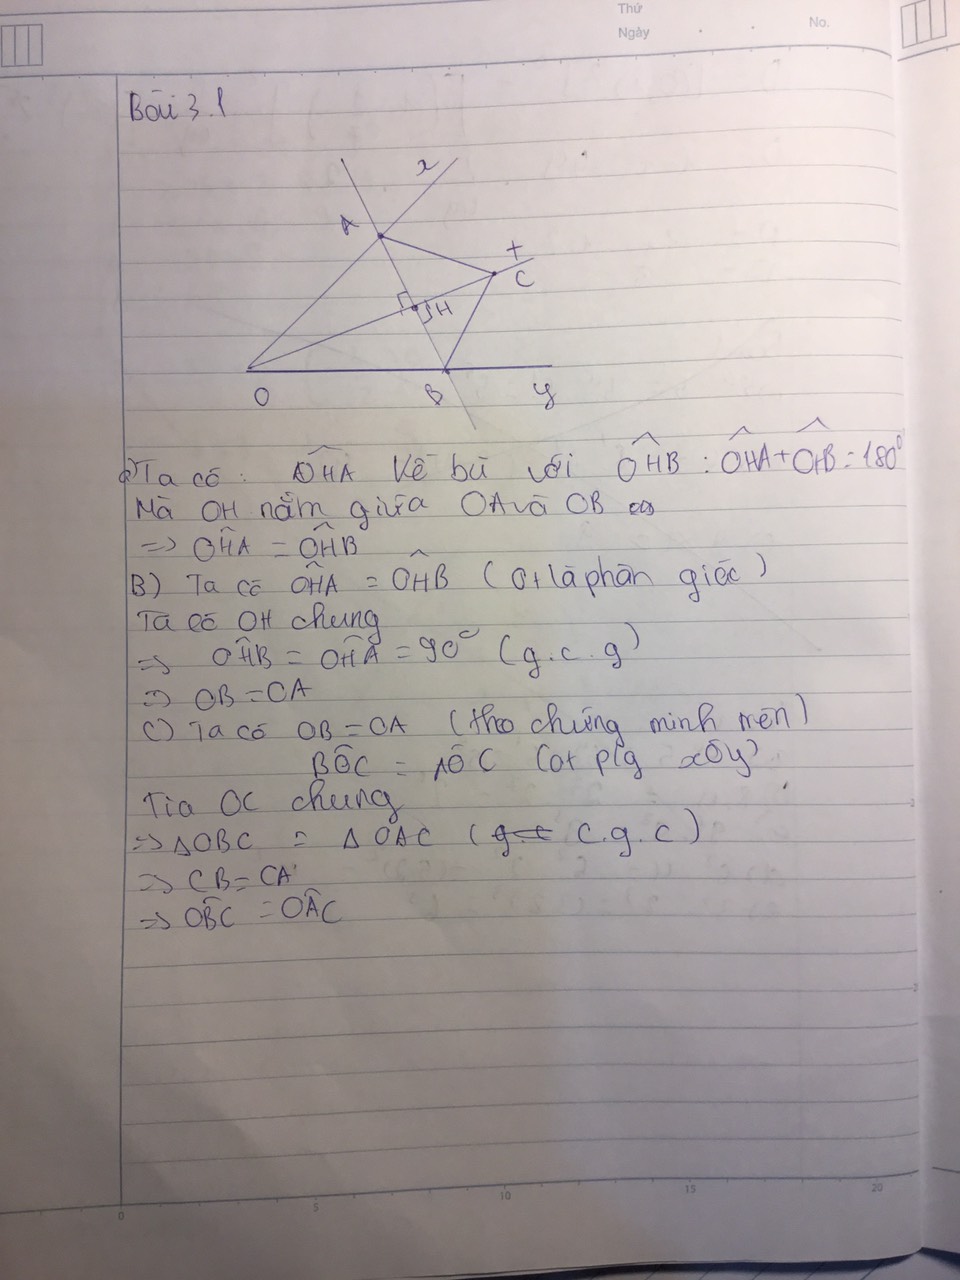 Thứ
Ngày
No.
Bài 3.1
x
A
t
C
H
O
B
y
a) Ta có: OHA kề bù với OHB : OHA + OHB = 180°
Mà OH nằm giữa OA và OB
=> OHA = OHB
B) Ta có OHA = OHB (Ot là phân giác)
Ta có OH chung
=> OHB = OHA = 90° (g.c.g)
=> OB = OA
C) Ta có OB = OA (theo chứng minh trên)
BOC = AOC (Ot p/g xOy)
Tia OC chung
=> ΔOBC = ΔOAC (c.g.c)
=> CB = CA
=> OBC = OAC
0 5 10 15 20